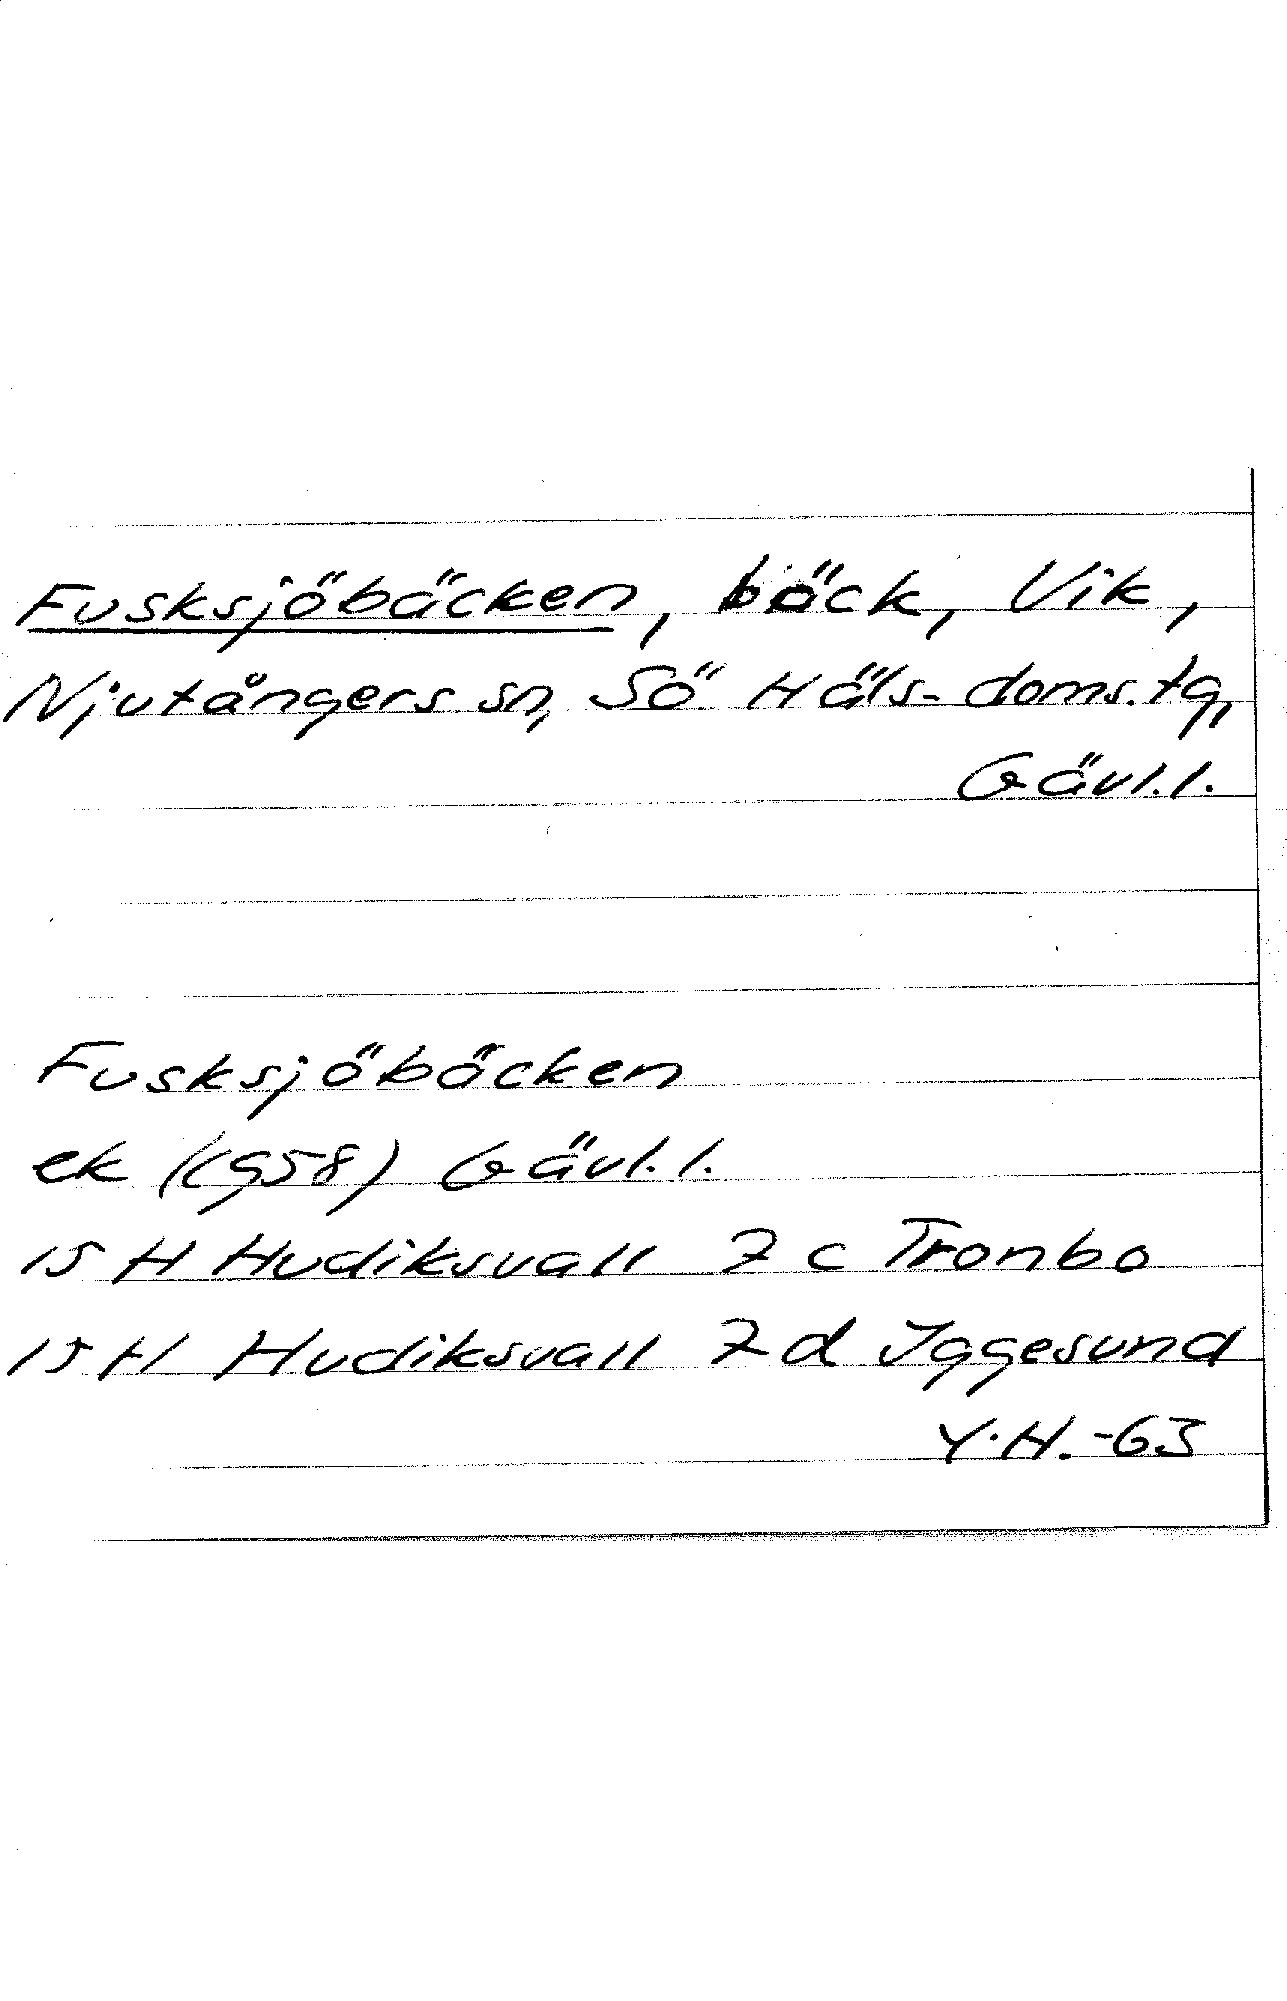 Fusksjöbäcken, bäck, Vik,
Njutångers sn, Sö Häls. doms. tg,
Gävl. l.
Fusksjöbäcken
ek (1958) Gävl. l.
15 H Hudiksvall 7 c Tronbo
15 H Hudiksvall 7 d Iggesund
Y.H.-63